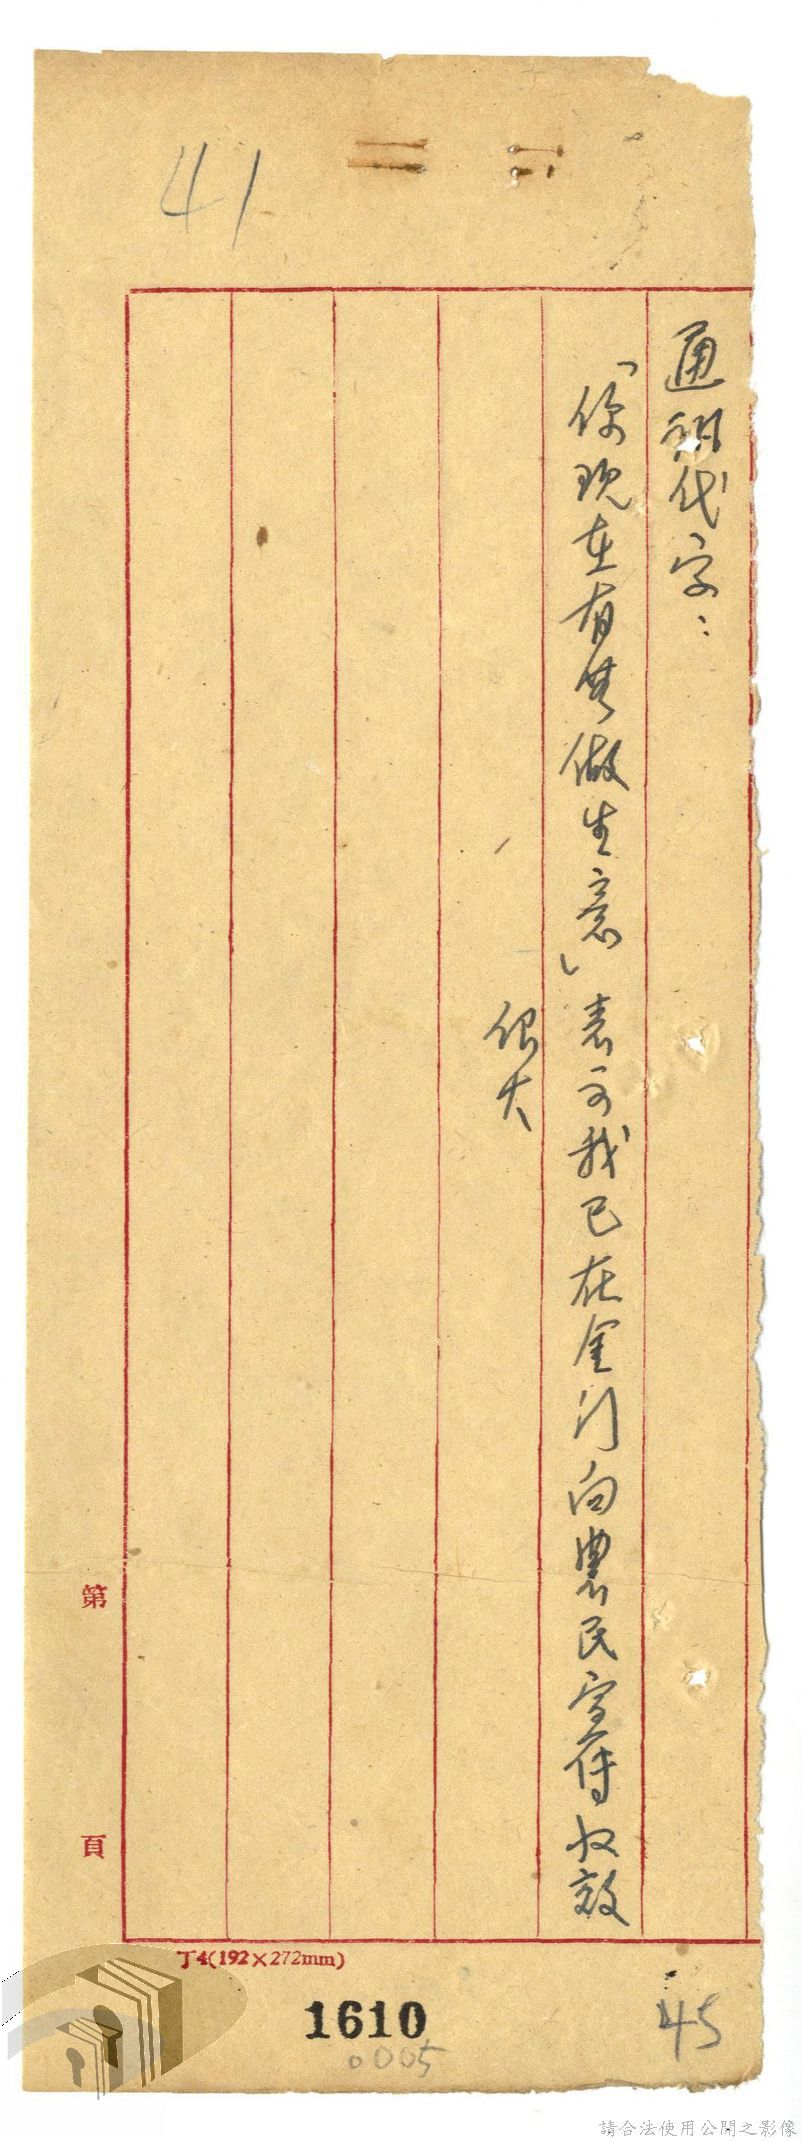 41
通訊代字：
「你現在有無做生意」表示我已在金门向農民宣傳收效
很大
第
頁
丁4(192×272mm)
1610
0005
45
請合法使用公開之影像